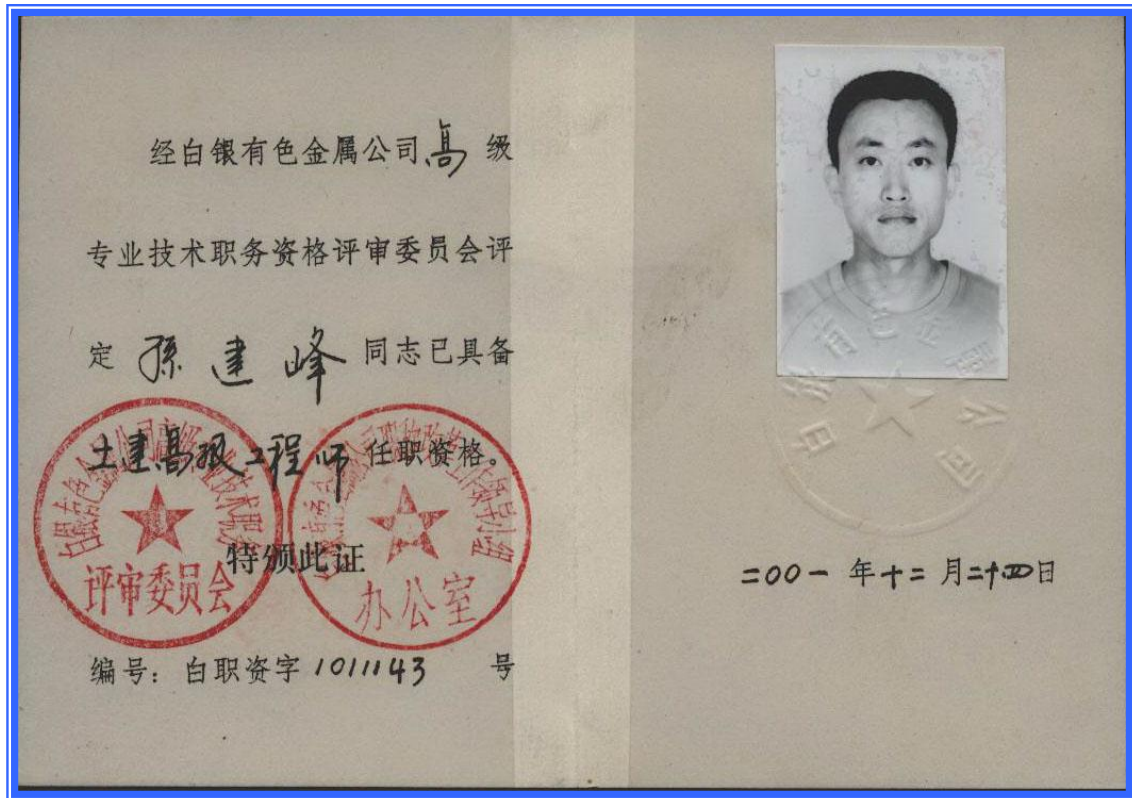 经白银有色金属公司高 级
专业技术职务资格评审委员会评
定 孫建峰 同志已具备
土建高级工程师 任职资格。
特颁此证
评审委员会
办公室
编号：白职资字1011143 号
二00一 年十二月二十四日